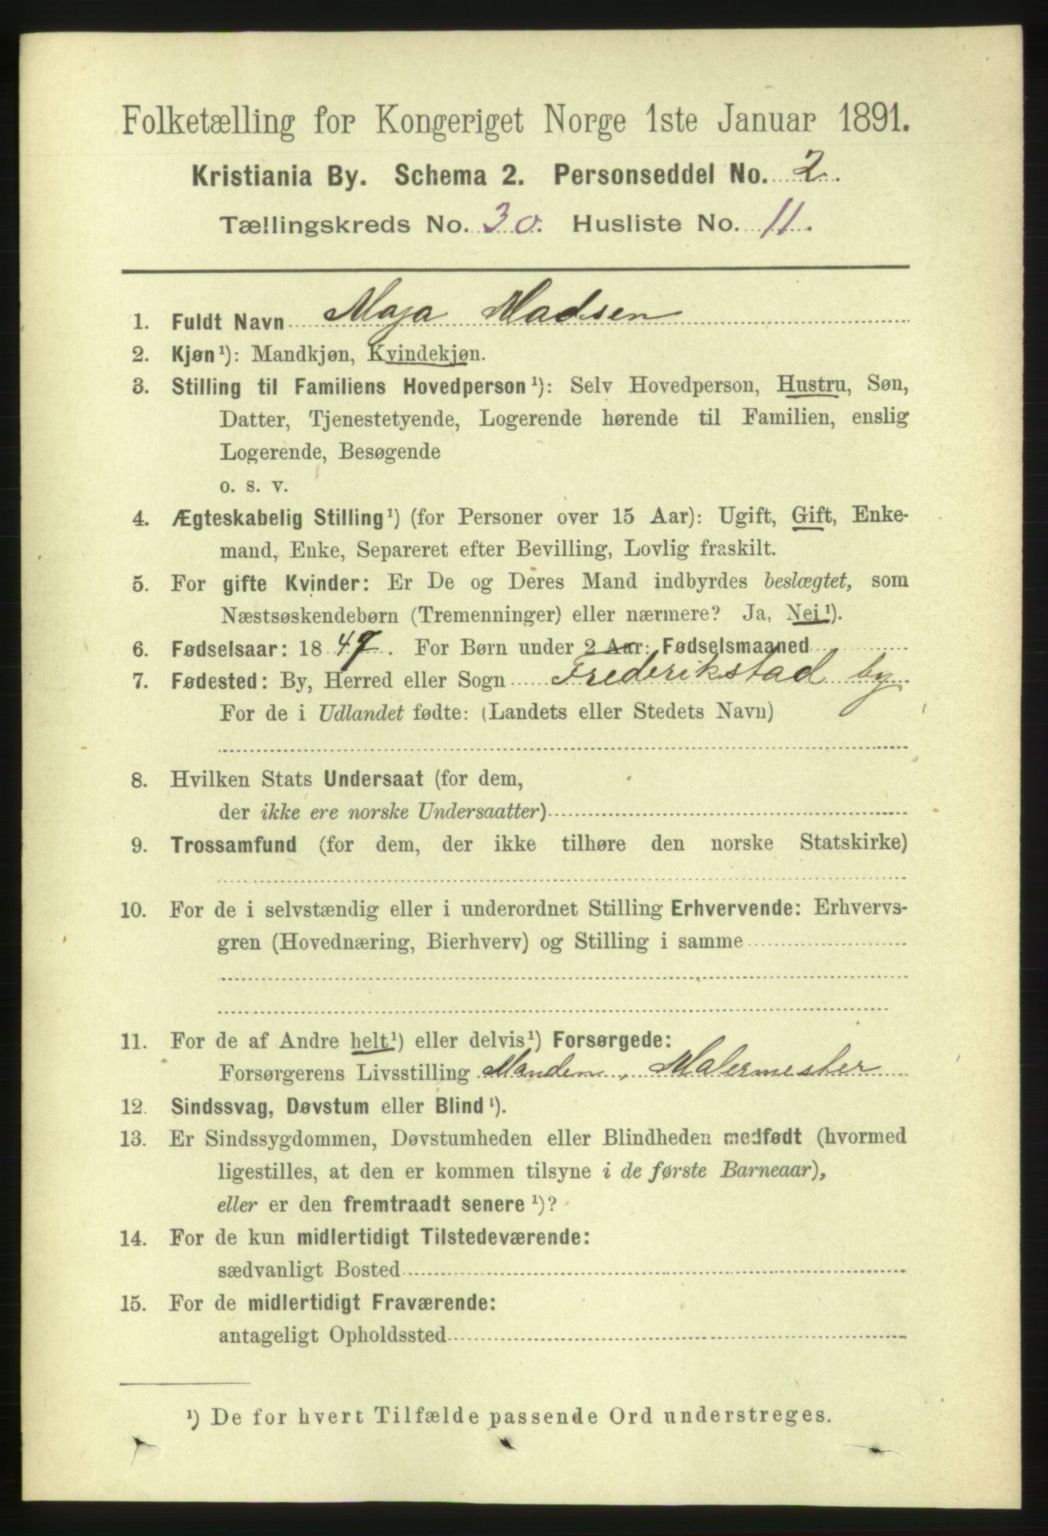 Folketælling for Kongeriget Norge 1ste Januar 1891.
Kristiania By. Schema 2. Personseddel No. 2.
Tællingskreds No. 30. Husliste No. 11.
1. Fuldt Navn Maja Madsen
2. Kjøn¹): Mandkjøn, Kvindekjøn.
3. Stilling til Familiens Hovedperson¹): Selv Hovedperson, Hustru, Søn,
Datter, Tjenestetyende, Logerende hørende til Familien, enslig
Logerende, Besøgende
o. s. v.
4. Ægteskabelig Stilling¹) (for Personer over 15 Aar): Ugift, Gift, Enke-
mand, Enke, Separeret efter Bevilling, Lovlig fraskilt.
5. For gifte Kvinder: Er De og Deres Mand indbyrdes beslægtet, som
Næstsøskendebørn (Tremenninger) eller nærmere? Ja, Nei¹).
6. Fødselsaar: 1847. For Børn under 2 Aar: Fødselsmaaned
7. Fødested: By, Herred eller Sogn Frederikstad by
For de i Udlandet fødte: (Landets eller Stedets Navn)
8. Hvilken Stats Undersaat (for dem,
der ikke ere norske Undersaatter)
9. Trossamfund (for dem, der ikke tilhøre den norske Statskirke)
10. For de i selvstændig eller i underordnet Stilling Erhvervende: Erhvervs-
gren (Hovednæring, Bierhverv) og Stilling i samme
11. For de af Andre helt¹) eller delvis¹) Forsørgede:
Forsørgerens Livsstilling Manden, Malermester
12. Sindssvag, Døvstum eller Blind¹).
13. Er Sindssygdommen, Døvstumheden eller Blindheden medfødt (hvormed
ligestilles, at den er kommen tilsyne i de første Barneaar),
eller er den fremtraadt senere¹)?
14. For de kun midlertidigt Tilstedeværende:
sædvanligt Bosted
15. For de midlertidigt Fraværende:
antageligt Opholdssted
¹) De for hvert Tilfælde passende Ord understreges.